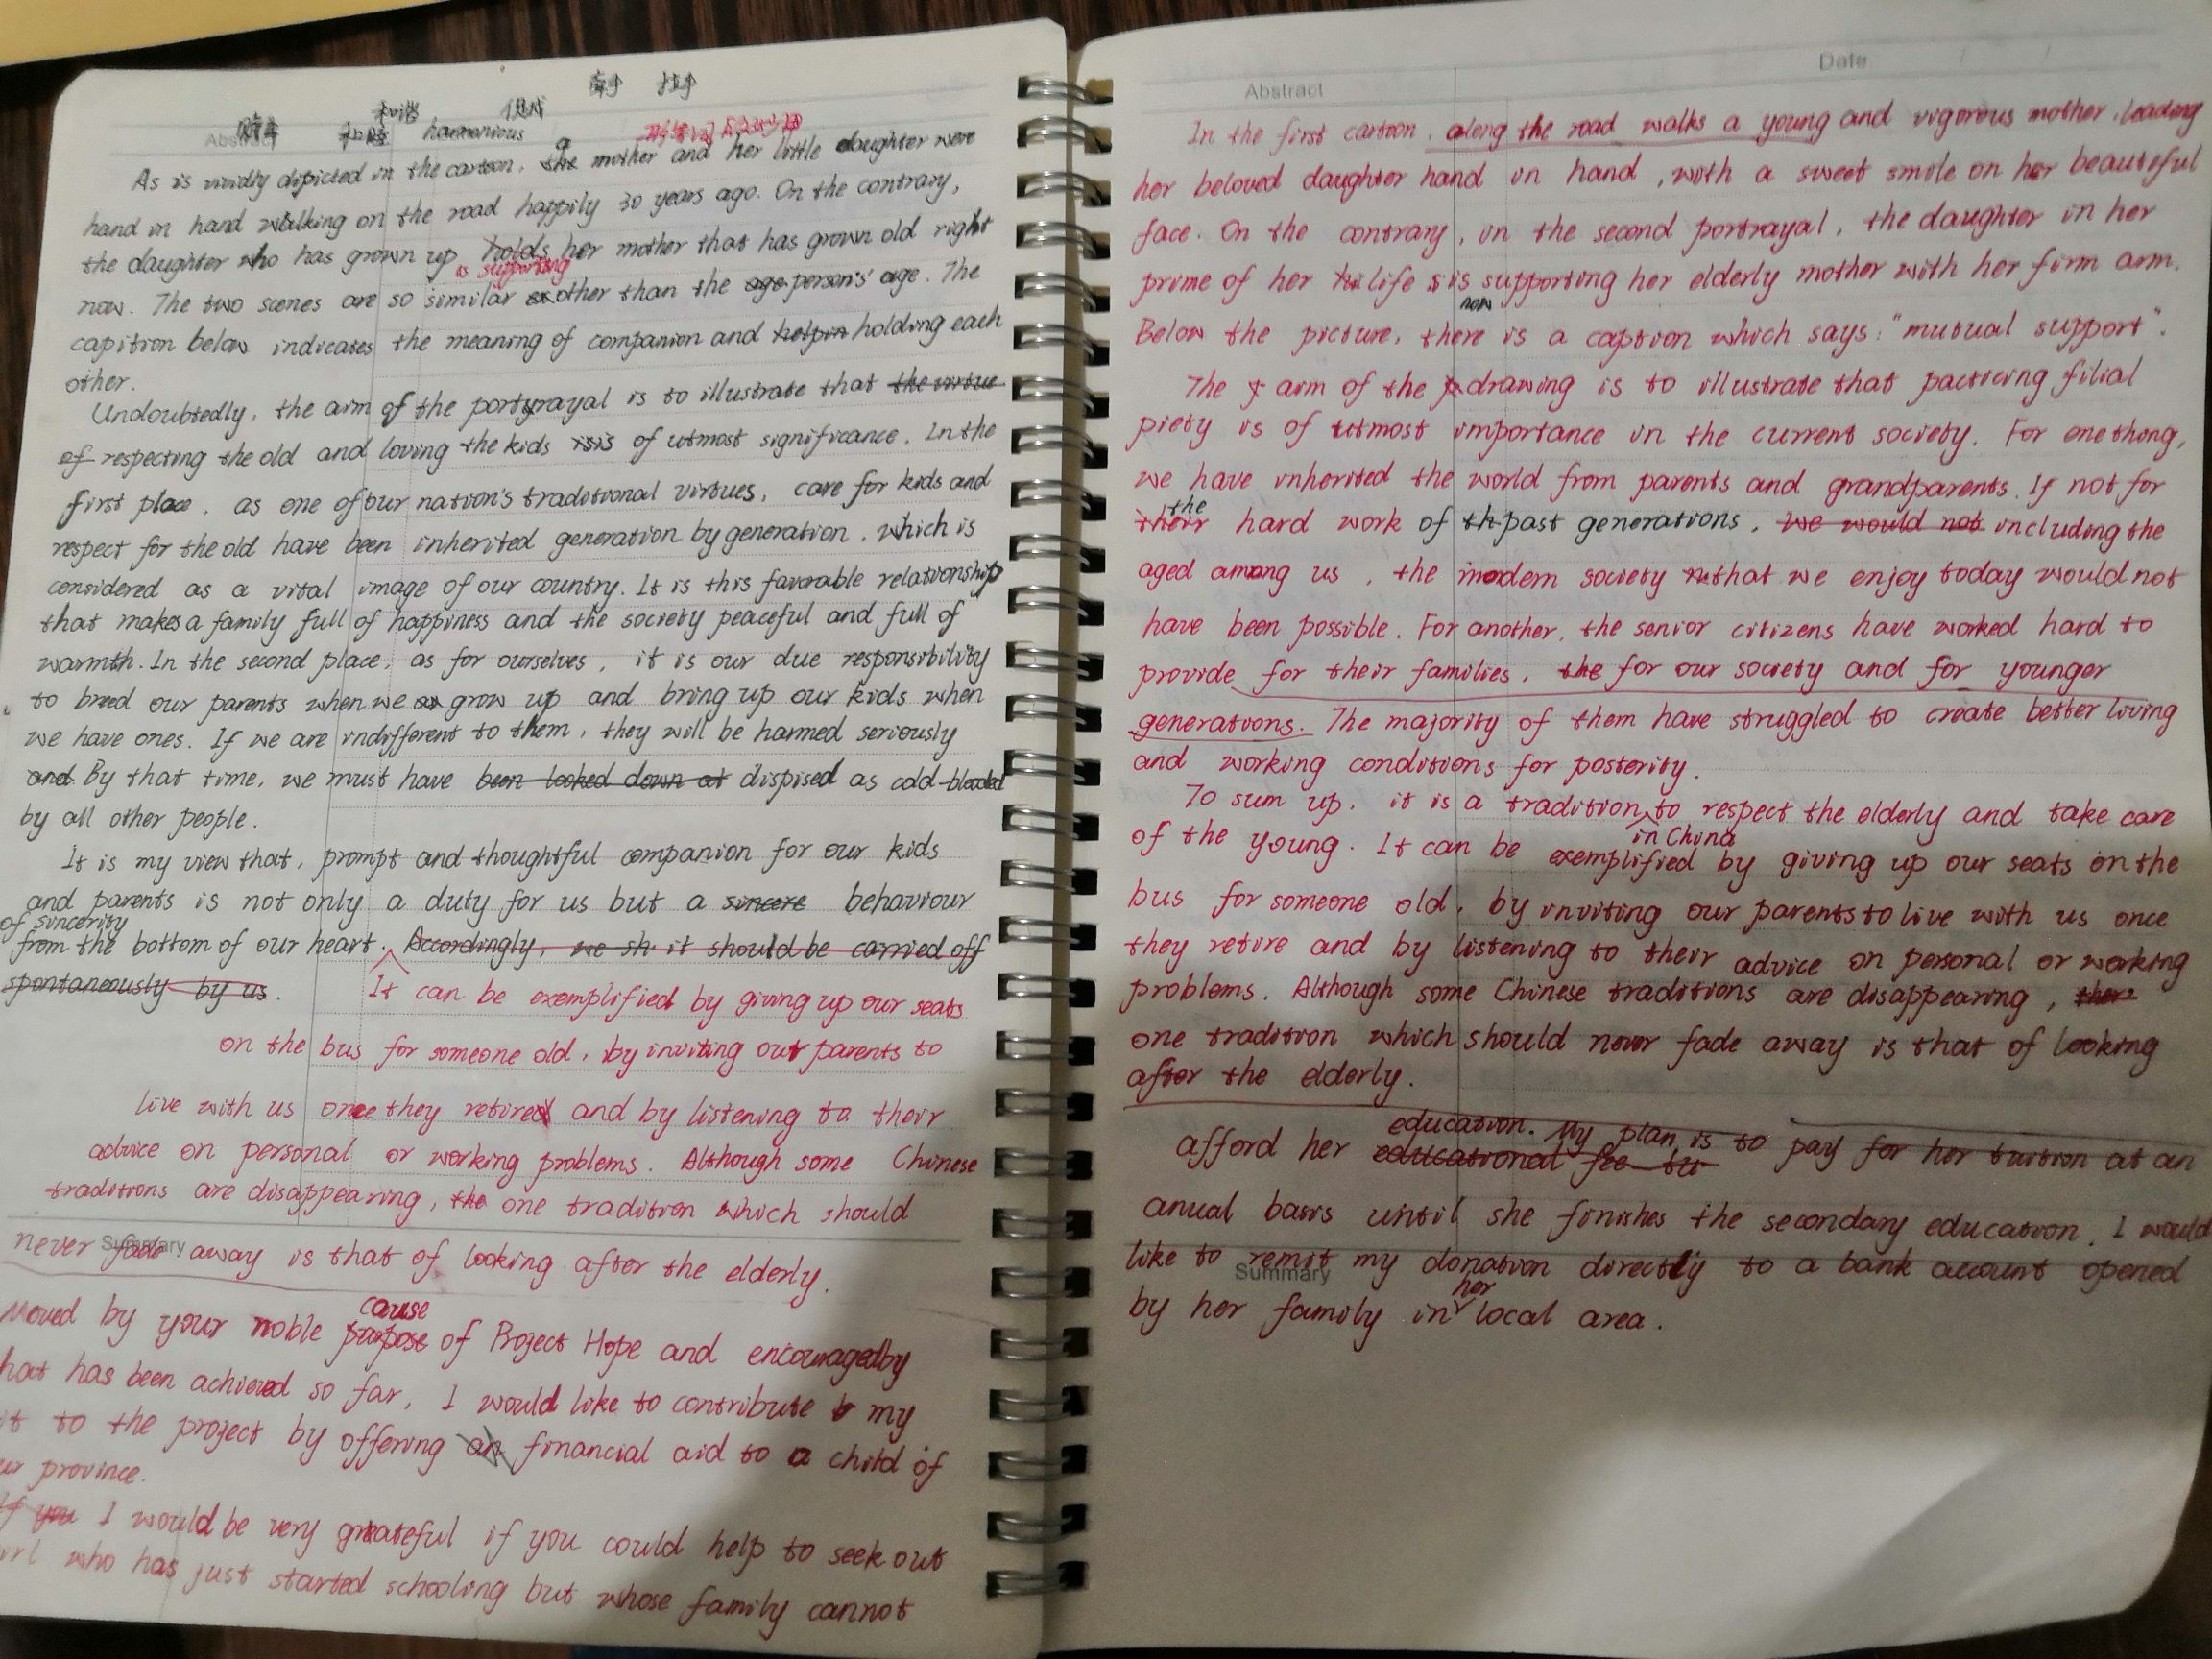 牵手 扶手
和谐
赡养 和睦 harmonious
Abstract
As is vividly dipicted in the cartoon, a mother and her little daughter were
hand in hand walking on the road happily 30 years ago. On the contrary,
the daughter who has grown up holds her mother that has grown old right
is supporting
now. The two scenes are so similar other than the person's' age. The
capitron below indicates the meaning of companion and holding each
other.
Undoubtedly, the aim of the portyrayal is to illustrate that the virtue
of respecting the old and loving the kids is of utmost significance. In the
first place, as one of our nation's traditional virtues, care for kids and
respect for the old have been inherited generation by generation, which is
considered as a vital image of our country. It is this favorable relationship
that makes a family full of happiness and the society peaceful and full of
warmth. In the second place, as for ourselves, it is our due responsibility
to breed our parents when we grow up and bring up our kids when
we have ones. If we are indifferent to them, they will be harmed seriously
and. By that time, we must have been looked down at dispised as cold-blooded
by all other people.
It is my view that, prompt and thoughtful companion for our kids
and parents is not only a duty for us but a sincere behaviour
of sincerity
from the bottom of our heart. Accordingly, we sh it should be carried off
spontaneously by us.
It can be exemplified by giving up our seats
on the bus for someone old, by inviting our parents to
live with us once they retired and by listening to their
advice on personal or working problems. Although some Chinese
traditions are disappearing, the one tradition which should
Summary
never fade away is that of looking after the elderly.
cause
Moved by your noble purpose of Project Hope and encouraged by
hat has been achieved so far, I would like to contribute my
it to the project by offering an financial aid to a child of
ur province.
If you I would be very grateful if you could help to seek out
irl who has just started schooling but whose family cannot
Date
Abstract
In the first cartoon, along the road walks a young and vigorous mother, leading
her beloved daughter hand in hand, with a sweet smile on her beautiful
face. On the contrary, in the second portrayal, the daughter in her
prime of her life is supporting her elderly mother with her firm arm.
now
Below the picture, there is a caption which says: "mutual support".
The aim of the drawing is to illustrate that pacticing filial
piety is of utmost importance in the current society. For one thing,
we have inherited the world from parents and grandparents. If not for
the
their hard work of past generations, we would not including the
aged among us, the modern society that we enjoy today would not
have been possible. For another, the senior citizens have worked hard to
provide for their families, the for our society and for younger
generations. The majority of them have struggled to create better living
and working conditions for posterity.
To sum up, it is a tradition to respect the elderly and take care
in China
of the young. It can be exemplified by giving up our seats on the
bus for someone old, by inviting our parents to live with us once
they retire and by listening to their advice on personal or working
problems. Although some Chinese traditions are disappearing, there
one tradition which should never fade away is that of looking
after the elderly.
education. My plan is to pay for her tuition at an
afford her educational fee tu
anual basis until she finishes the secondary education. I would
like to remit my donation directly to a bank account opened
Summary
her
by her family in local area.